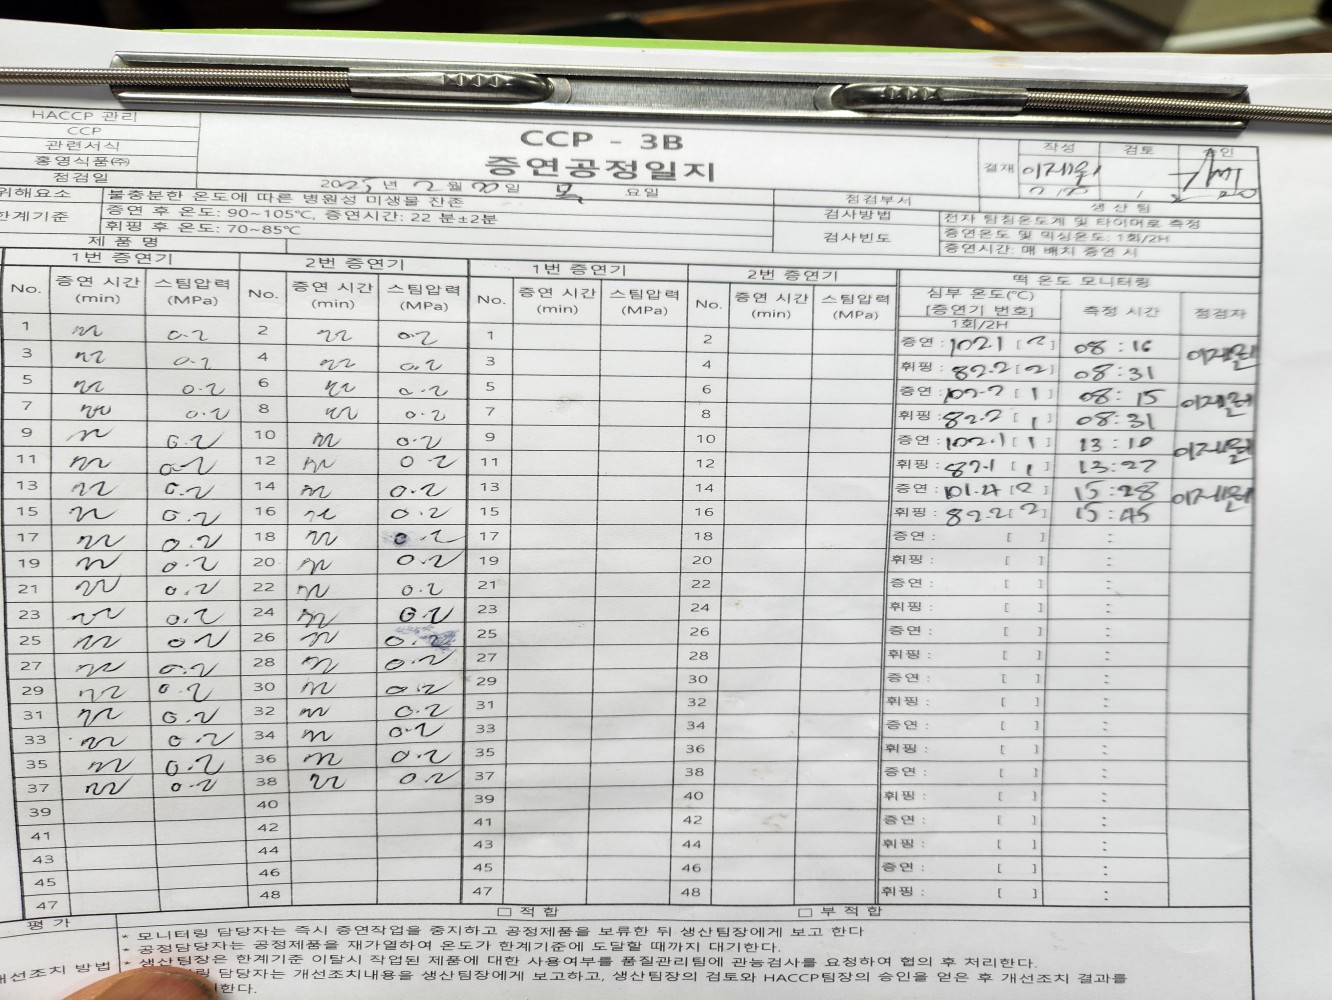 HACCP 관리
CCP
관련서식
홍영식품㈜
CCP - 3B
증연공정일지
결재 작성 검토 승인
이재원
점검일 2025년 2월 20일 목 요일 점검부서 생산팀
위해요소 불충분한 온도에 따른 병원성 미생물 잔존
한계기준 증연 후 온도: 90~105℃, 증연시간: 22 분±2분
휘핑 후 온도: 70~85℃
검사방법 전자 탐침온도계 및 타이머로 측정
검사빈도 증연온도 및 믹싱온도: 1회/2H
증연시간: 매 배치 증연 시
제 품 명
1번 증연기 2번 증연기 1번 증연기 2번 증연기 떡 온도 모니터링
No. 증연 시간 (min) 스팀압력 (MPa) No. 증연 시간 (min) 스팀압력 (MPa) No. 증연 시간 (min) 스팀압력 (MPa) No. 증연 시간 (min) 스팀압력 (MPa) 심부 온도(℃) [증연기 번호] 1회/2H 측정 시간 점검자
1 22 0.2 2 22 0.2 1 2 증연 : 102.1 [ 2 ] 08 : 16 이재원
3 22 0.2 4 22 0.2 3 4 휘핑 : 82.2 [ 2 ] 08 : 31
5 22 0.2 6 22 0.2 5 6 증연 : 102.2 [ 1 ] 08 : 15 이재원
7 22 0.2 8 22 0.2 7 8 휘핑 : 82.2 [ 1 ] 08 : 31
9 22 0.2 10 22 0.2 9 10 증연 : 102.1 [ 1 ] 13 : 10 이재원
11 22 0.2 12 22 0.2 11 12 휘핑 : 82.1 [ 1 ] 13 : 27
13 22 0.2 14 22 0.2 13 14 증연 : 101.4 [ 2 ] 15 : 28 이재원
15 22 0.2 16 22 0.2 15 16 휘핑 : 82.2 [ 2 ] 15 : 45
17 22 0.2 18 22 0.2 17 18 증연 : [ ] :
19 22 0.2 20 22 0.2 19 20 휘핑 : [ ] :
21 22 0.2 22 22 0.2 21 22 증연 : [ ] :
23 22 0.2 24 22 0.2 23 24 휘핑 : [ ] :
25 22 0.2 26 22 0.2 25 26 증연 : [ ] :
27 22 0.2 28 22 0.2 27 28 휘핑 : [ ] :
29 22 0.2 30 22 0.2 29 30 증연 : [ ] :
31 22 0.2 32 22 0.2 31 32 휘핑 : [ ] :
33 22 0.2 34 22 0.2 33 34 증연 : [ ] :
35 22 0.2 36 22 0.2 35 36 휘핑 : [ ] :
37 22 0.2 38 22 0.2 37 38 증연 : [ ] :
39 40 39 40 휘핑 : [ ] :
41 42 41 42 증연 : [ ] :
43 44 43 44 휘핑 : [ ] :
45 46 45 46 증연 : [ ] :
47 48 47 48 휘핑 : [ ] :
평 가 □ 적합 □ 부적합
개선조치 방법
* 모니터링 담당자는 즉시 증연작업을 중지하고 공정제품을 보류한 뒤 생산팀장에게 보고 한다
* 공정담당자는 공정제품을 재가열하여 온도가 한계기준에 도달할 때까지 대기한다.
* 생산팀장은 한계기준 이탈시 작업된 제품에 대한 사용여부를 품질관리팀에 관능검사를 요청하여 협의 후 처리한다.
링 담당자는 개선조치내용을 생산팀장에게 보고하고, 생산팀장의 검토와 HACCP팀장의 승인을 얻은 후 개선조치 결과를
한다.